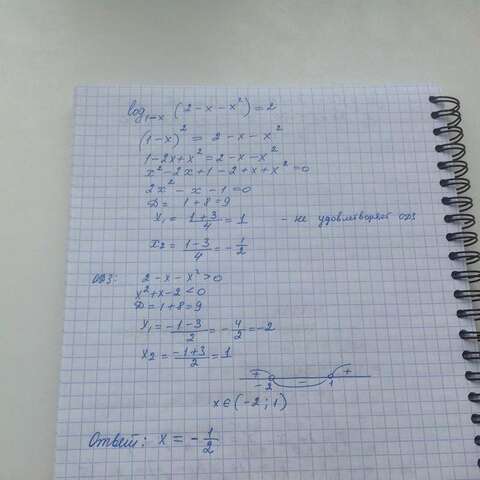 log₁₋ₓ (2-x-x²)=2
(1-x)² = 2-x-x²
1-2x+x²=2-x-x²
x²-2x+1-2+x+x²=0
2x²-x-1=0
D= 1+8=9
x₁ = (1+3)/4 = 1 - не удовлетворяет ОДЗ
x₂ = (1-3)/4 = -1/2
ОДЗ: 2-x-x²>0
x²+x-2<0
D=1+8=9
x₁ = (-1-3)/2 = -4/2 = -2
x₂ = (-1+3)/2 = 1
+ - +
-2 1
x∈(-2;1)
Ответ: x = -1/2